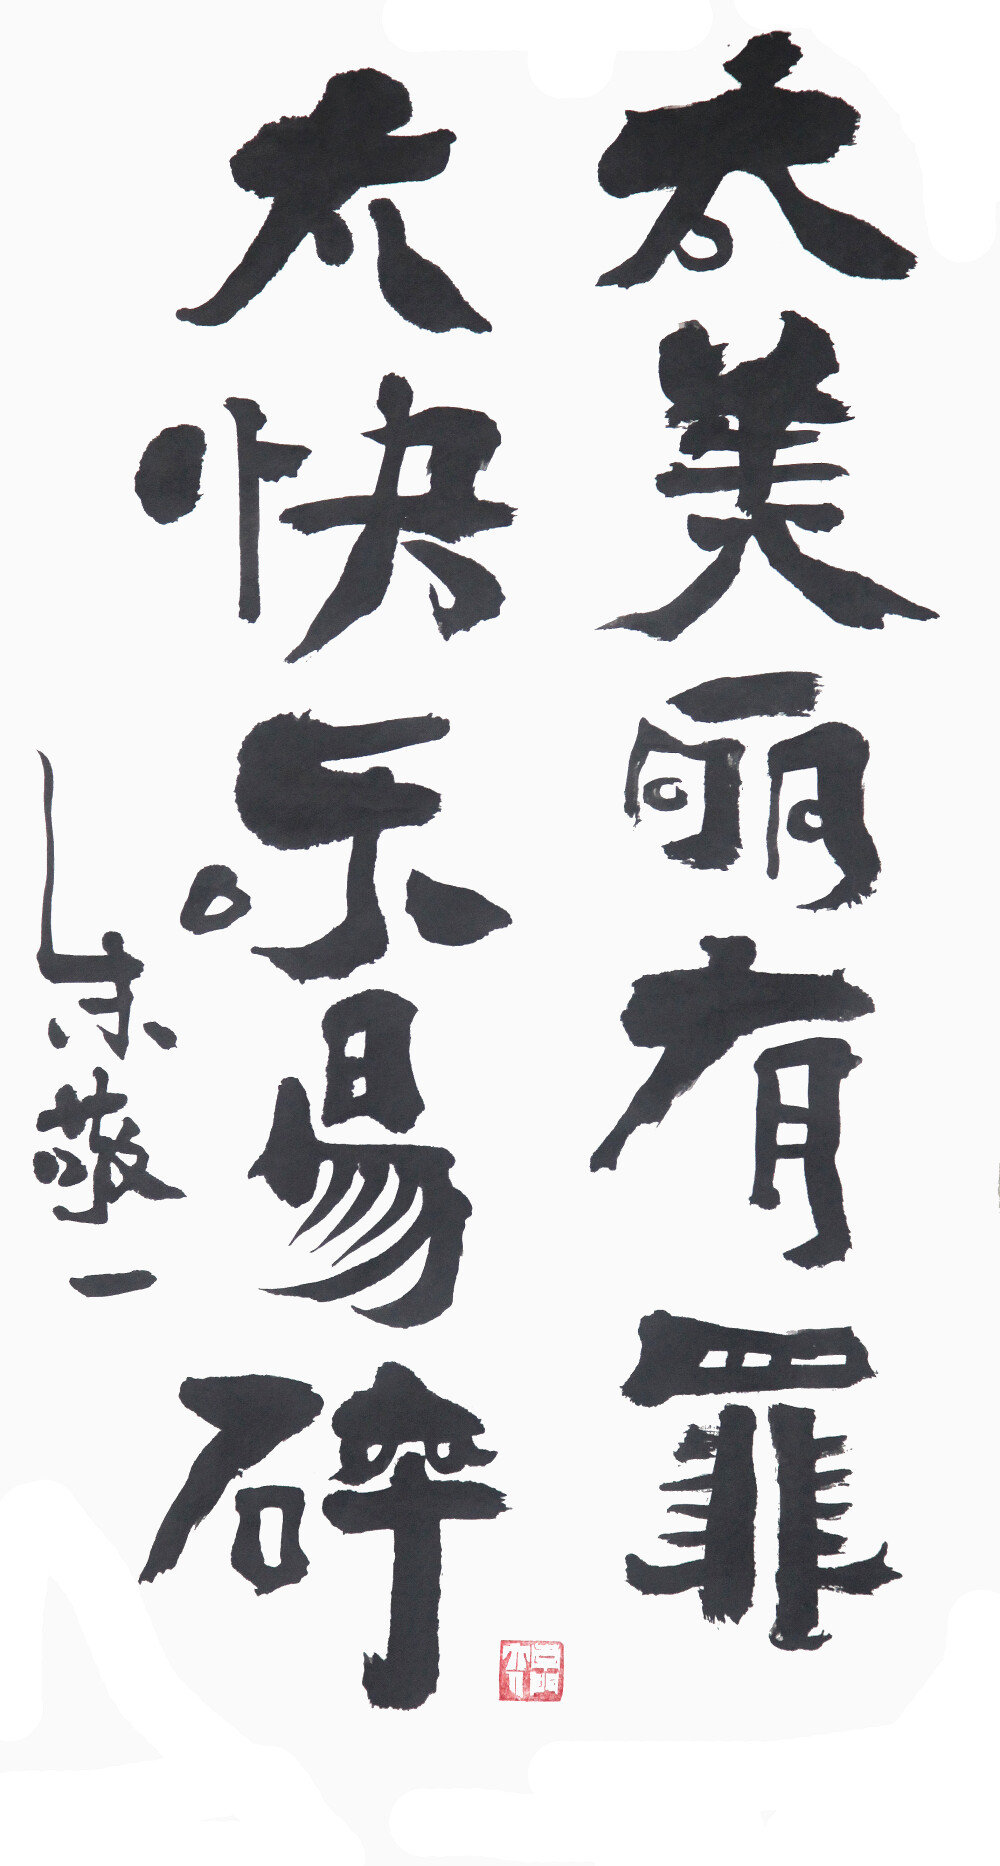 太美丽有罪
太快乐易碎
朱敬一